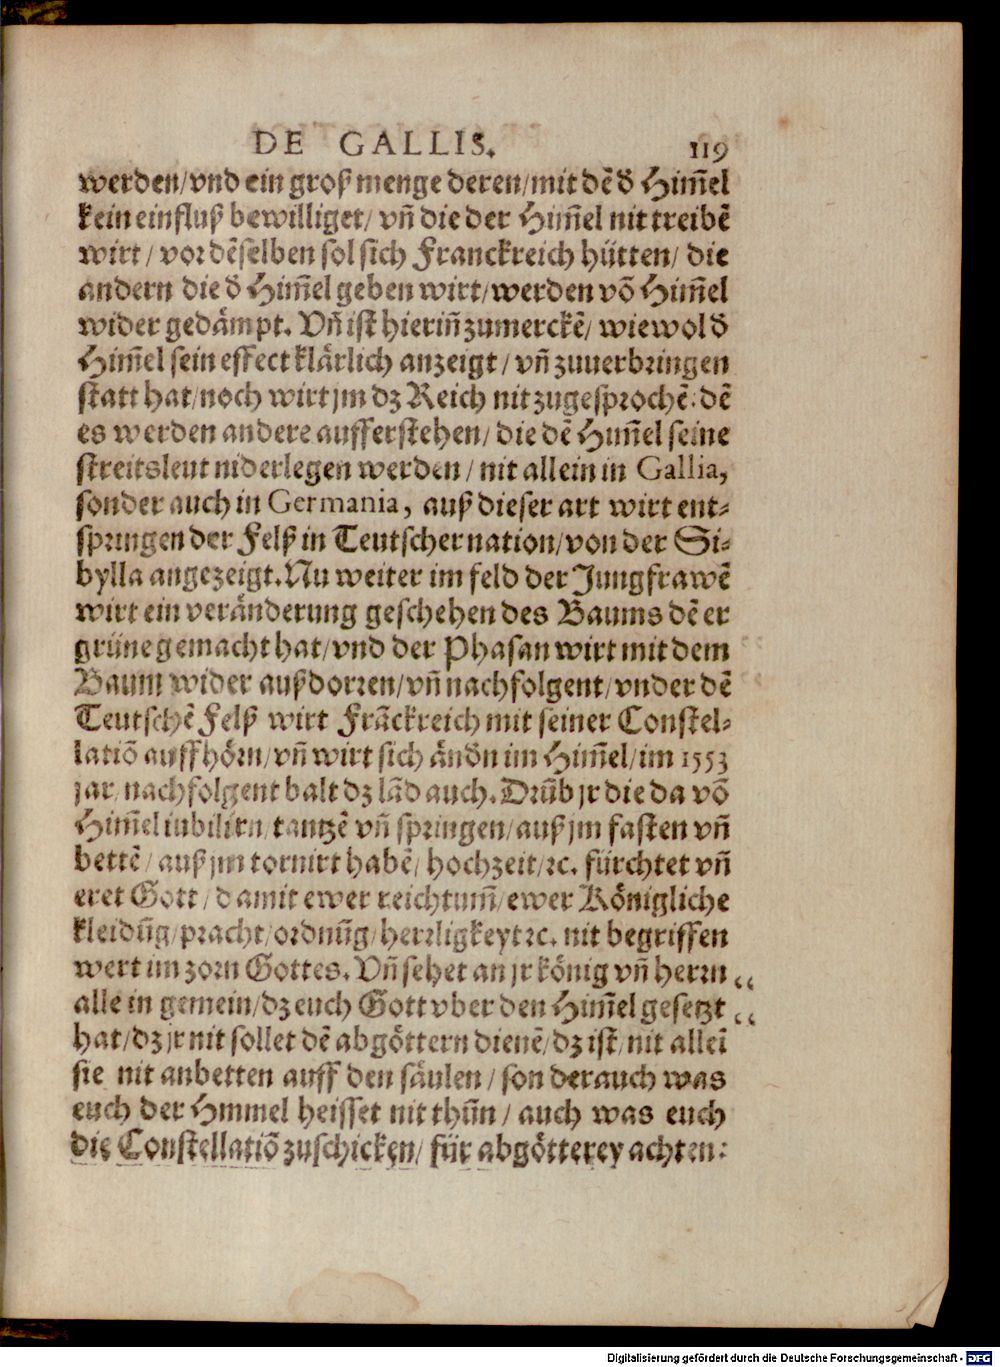 DE GALLIS. 119
werden/vnd ein groß menge deren/mit dẽ d̕ Him̃el
kein einfluß bewilliget/ vñ die der Him̃el nit treibẽ
wirt/ vor dẽselben sol sich Franckreich hütten/ die
andern die d̕ Him̃el geben wirt/werden võ Him̃el
wider gedämpt. Vñ ist hieriñ zumerckẽ/ wiewol d̕
Him̃el sein effect klärlich anzeigt/ vñ zuuerbringen
statt hat/noch wirt jm dz Reich nit zugesprochẽ: dẽ
es werden andere aufferstehen/ die dẽ Him̃el seine
streitsleut niderlegen werden/ nit allein in Gallia,
sonder auch in Germania, auß dieser art wirt ent-
springen der Felß in Teutscher nation/von der Si-
bylla angezeigt. Nu weiter im feld der Jungfrawẽ
wirt ein veränderung geschehen des Baums dẽ er
grüne gemacht hat/vnd der Phasan wirt mit dem
Baum wider außdorren/vñ nachfolgent/vnder dẽ
Teutschẽ Felß wirt Frãckreich mit seiner Constel-
latiõ auffhörn/vñ wirt sich ändn im Him̃el/im 1553
jar/nachfolgent balt dz lãd auch. Drũb jr die da võ
Him̃el iubilirn/tantzẽ vñ springen/auß jm fasten vñ
bettẽ/ auß jm tornirt habẽ/ hochzeit/ꝛc. fürchtet vñ
eret Gott/damit ewer reichtum̃/ewer Königliche
kleidũg/pracht/ordnũg/herrligkeyt ꝛc. nit begriffen
wert im zorn Gottes. Vñ sehet an jr könig vñ herrn „
alle in gemein/dz euch Gott vber den Him̃el gesetzt „
hat/dz jr nit sollet dẽ abgöttern dienẽ/dz ist/nit alleĩ
sie nit anbetten auff den säulen/ son der auch was
euch der Himmel heisset nit thũn/ auch was euch
die Constellatiõ zuschicken/ für abgötterey achten:
Digitalisierung gefördert durch die Deutsche Forschungsgemeinschaft - DFG